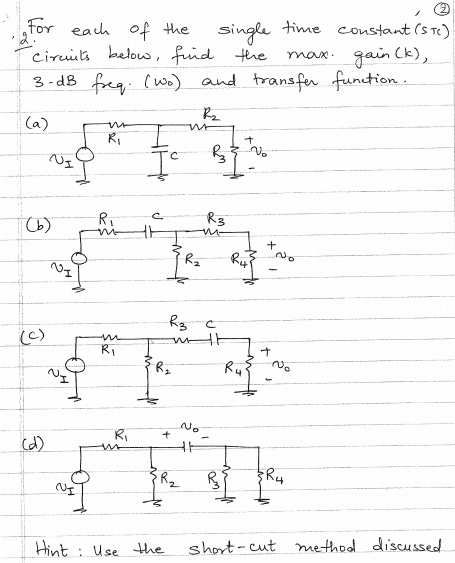 ②
2. For each of the single time constant (STC)
circuits below, find the max. gain (k),
3-dB freq. (ω₀) and transfer function.
(a)
R₂
R₁
C
R₃
+
v₀
-
v_I
(b)
R₁ C R₃
R₂ R₄
+
v₀
-
v_I
(c)
R₃ C
R₁
R₂ R₄
+
v₀
-
v_I
(d)
R₁ + v₀ -
R₂ R₃ R₄
v_I
Hint : Use the short-cut method discussed